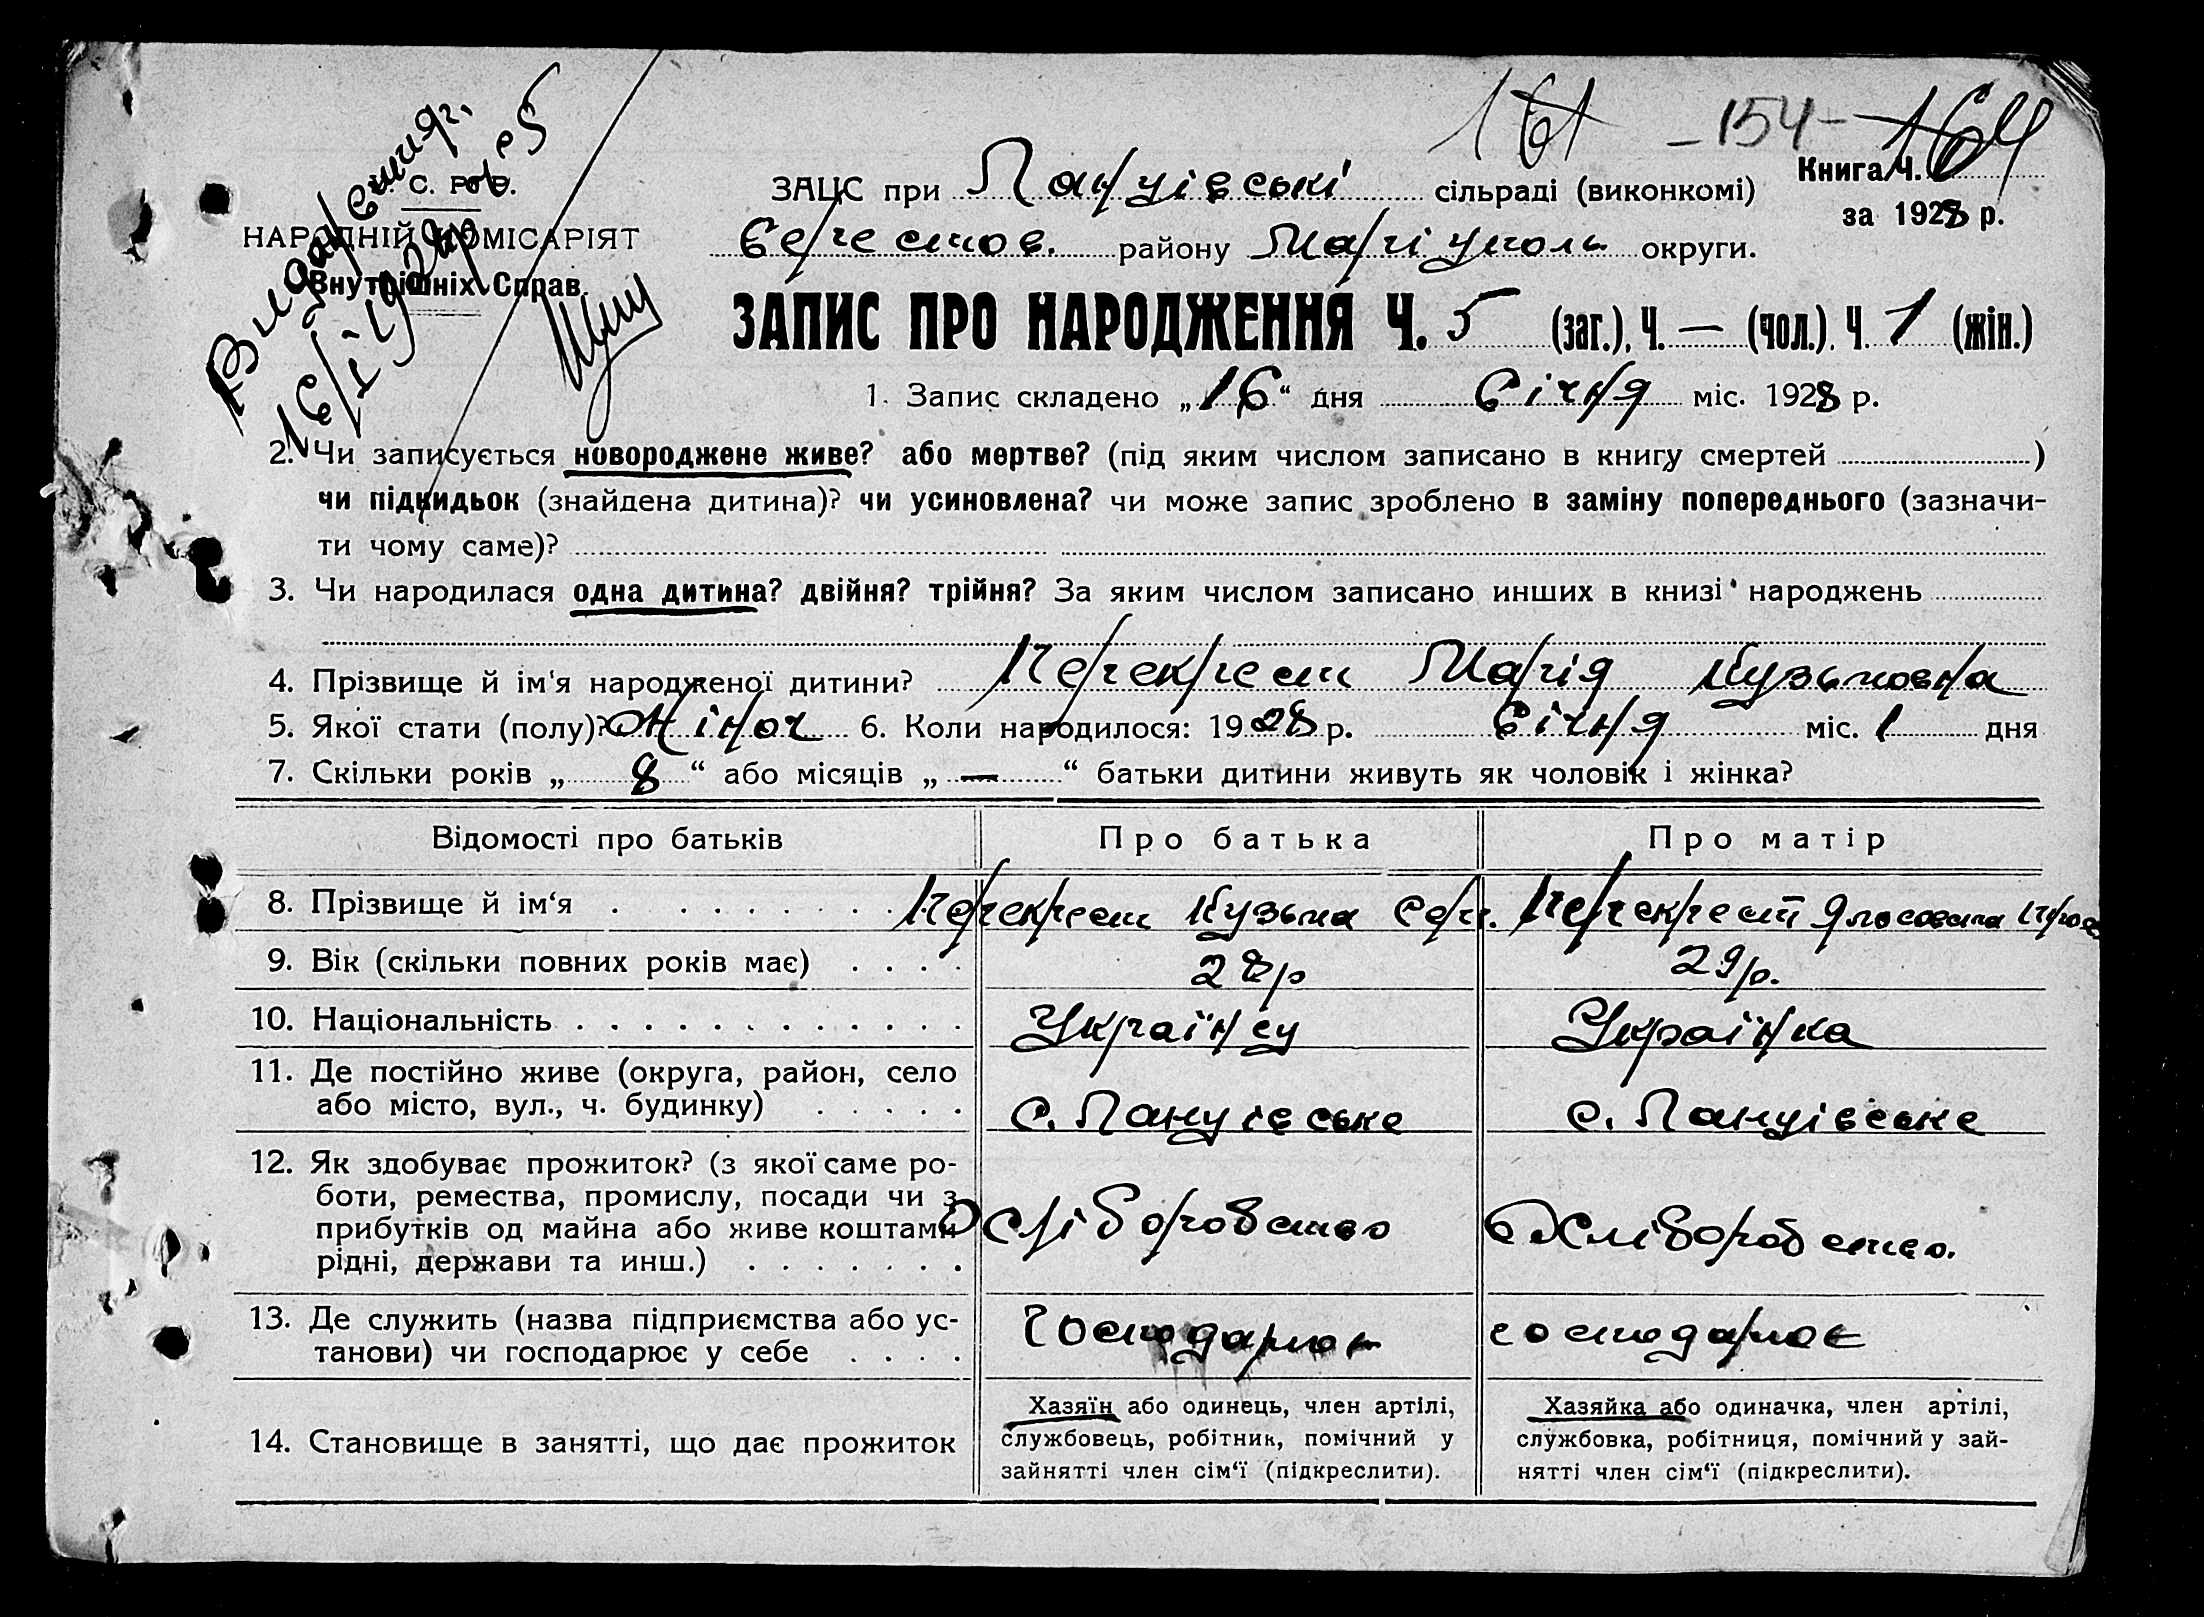 161 -154- 164
Видан витяг.
16/I 1928 р. № 5
У. С. Р. Р.
НАРОДНІЙ КОМІСАРІЯТ
Внутрішніх Справ.
ЗАЦС при Ланцівські сільраді (виконкомі)
Книга Ч.
за 1928 р.
Берестов. району Маріуполь округи.
ЗАПИС ПРО НАРОДЖЕННЯ Ч. 5 (заг.), Ч. — (чол.). Ч. 1 (жін.)
1. Запис складено „16“ дня Січня міс. 1928 р.
2. Чи записується новороджене живе? або мертве? (під яким числом записано в книгу смертей )
чи підкидьок (знайдена дитина)? чи усиновлена? чи може запис зроблено в заміну попереднього (зазначи-
ти чому саме)?
3. Чи народилася одна дитина? двійня? трійня? За яким числом записано инших в книзі народжень
4. Прізвище й ім'я народженої дитини? Перекрест Марія Кузьмовна
5. Якої стати (полу)? Жіноч 6. Коли народилося: 1928 р. Січня міс. 1 дня
7. Скільки років „ 8 “ або місяців „ — “ батьки дитини живуть як чоловік і жінка?
Відомості про батьків Про батька Про матір
8. Прізвище й ім‘я . . . . . . . . Перекрест Кузьма Серг. Перекрест
9. Вік (скільки повних років має) . . . . 28р 29р.
10. Національність . . . . . . . . . . . . Українец Українка
11. Де постійно живе (округа, район, село
або місто, вул., ч. будинку) . . . . . с. Ланцівське с. Ланцівське
12. Як здобуває прожиток? (з якої саме ро-
боти, ремества, промислу, посади чи з
прибутків од майна або живе коштами
рідні, держави та инш.) . . . . . . . Хліборобство Хліборобство.
13. Де служить (назва підприємства або ус-
танови) чи господарює у себе . . . . господарює господарює
14. Становище в занятті, що дає прожиток
Хазяїн або одинець, член артілі,
службовець, робітник, помічний у
зайнятті член сім‘ї (підкреслити).
Хазяйка або одиначка, член артілі,
службовка, робітниця, помічний у зай-
нятті член сім‘ї (підкреслити).